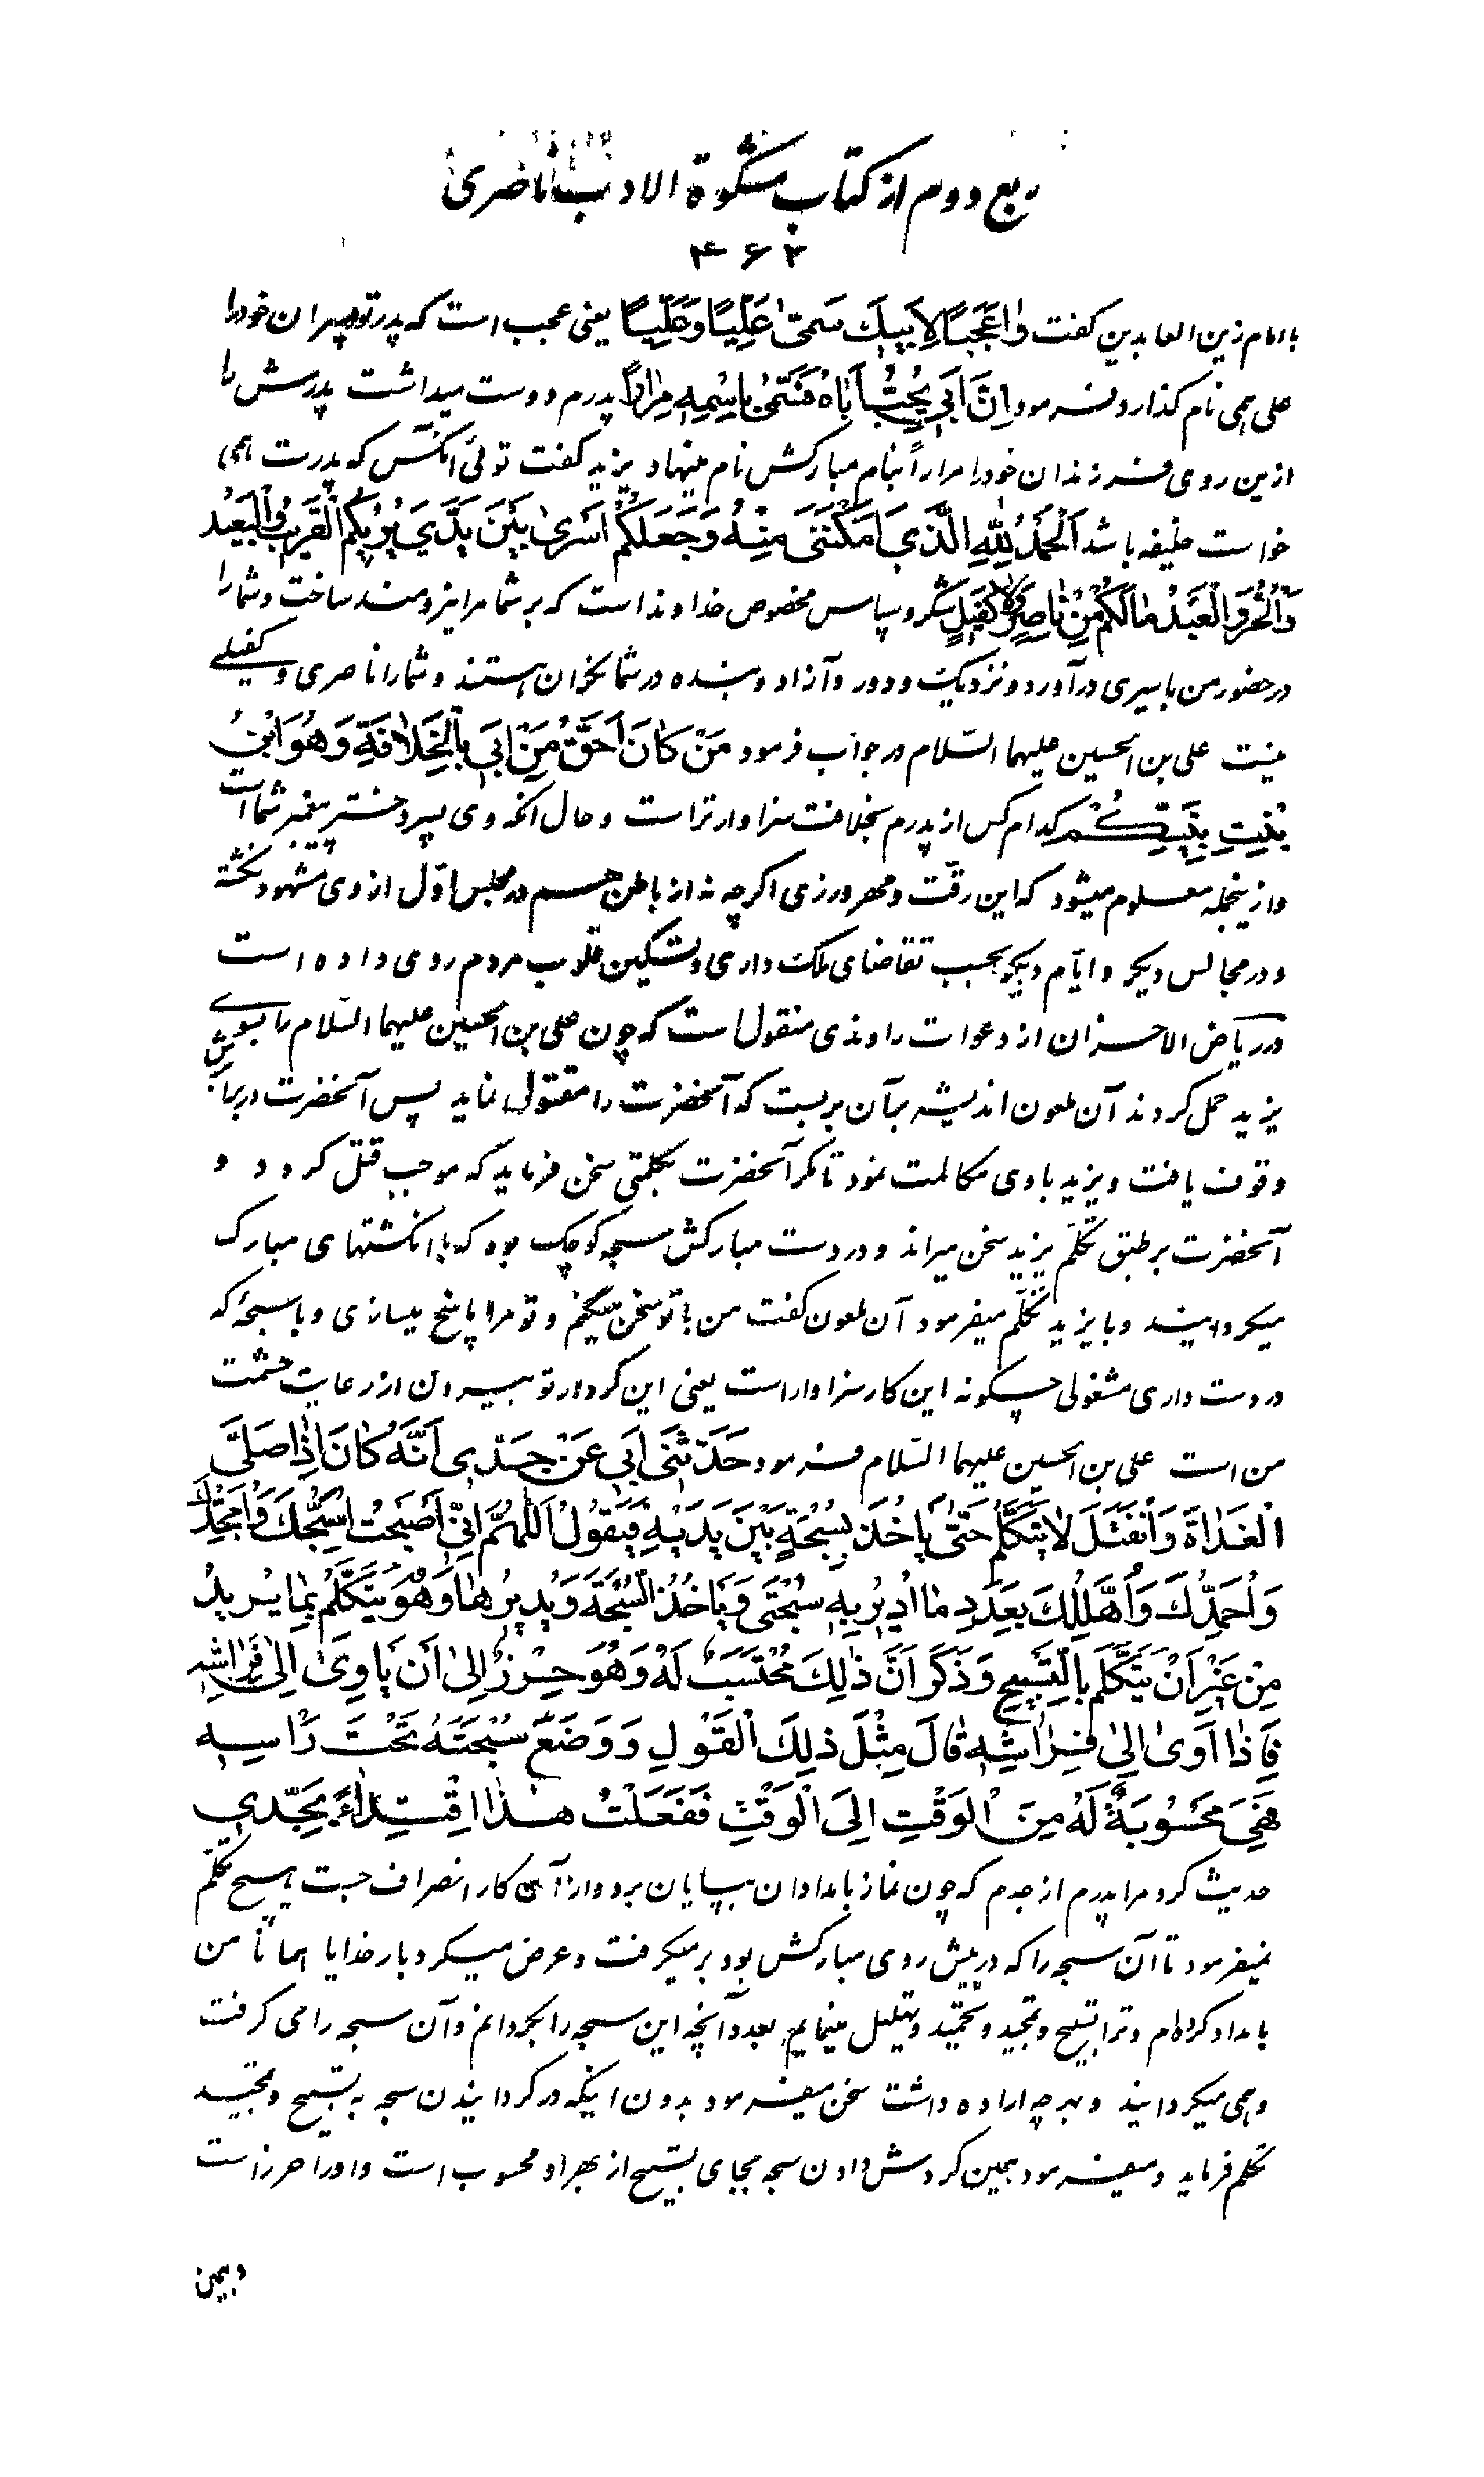 ربع دوم از کتاب مشکوة الادب ناصری
۴۶۲
با امام زین العابدین گفت وٰاعَجَبًا لِاَبیكَ سَمّىٰ عَلِیًّا وَ عَلِیًّا یعنی عجب است که پدر تو پسران خود را
علی همی نام گذارد فرمود اِنَّ اَبی یُحِبُّ اَبٰاهُ فَسَمّىٰ بِاسْمِهِ مِرٰارًا پدرم دوست میداشت پدرش را
ازین روی فرزندان خود را مراراً بنام مبارکش نام مینهاد یزید گفت توئی آنکس که پدرت همی
خواست خلیفه باشد اَلْحَمْدُ لِلّٰهِ الَّذی اَمْكَنَنی مِنْهُ وَ جَعَلَكُمْ اَسْرىٰ بَیْنَ یَدَیَّ یَرٰیكُمُ الْقَریبُ وَ الْبَعیدُ
وَ الْحُرُّ وَ الْعَبْدُ مٰا لَكُمْ مِنْ نٰاصِرٍ وَ لٰا كَفیلٍ شکر و سپاس مخصوص خداوند است که بر شما مرا نیرومند ساخت و شما را
در حضور من باسیری درآورد و نزدیک و دور و آزاد و بنده در شما نگران هستند و شما را ناصری و کفیلی
نیست علی بن الحسین علیهما السّلام در جواب فرمود مَنْ كٰانَ اَحَقَّ مِنْ اَبی بِالْخِلٰافَةِ وَ هُوَ ابْنُ
بِنْتِ نَبِیِّكُمْ کدام کس از پدرم بخلافت سزاوارتر است و حال آنکه وی پسر دختر پیغمبر شما است
و ازینجمله معلوم میشود که این رقّت و مهرورزی اگرچه نه از باطن هم در مجلس اوّل از وی مشهود نگشته
و در مجالس دیگر و ایّام دیگر بحسب تقاضای ملک داری و تسکین قلوب مردم روی داده است
در ریاض الاحزان از دعوات راوندی منقول است که چون علی بن الحسین علیهما السّلام را بسوی
یزید حمل کردند آن ملعون اندیشه بر آن بربست که آنحضرت را مقتول نماید پس آنحضرت در برابرش
وقوف یافت و یزید با وی مکالمت نمود تا مگر آنحضرت بکلمتی سخن فرماید که موجب قتل گردد و
آنحضرت بر طبق تکلّم یزید سخن میراند و در دست مبارکش سبحه کوچک بود که با انگشتهای مبارک
میگردانید و با یزید تکلّم میفرمود آن ملعون گفت من با تو سخن میکنم و تو مرا پاسخ میسازی و با سبحهٔ که
در دست داری مشغولی چگونه این کار سزاوار است یعنی این کردار تو بیرون از رعایت حشمت
من است علی بن الحسین علیهما السّلام فرمود حَدَّثَنی اَبی عَنْ جَدّی اَنَّهُ كٰانَ اِذٰا صَلَّى
الْغَدٰاةَ وَ انْفَتَلَ لٰا یَتَكَلَّمُ حَتّىٰ یَاْخُذَ سُبْحَةً بَیْنَ یَدَیْهِ فَیَقُولُ اَللّٰهُمَّ اِنّی اَصْبَحْتُ اُسَبِّحُكَ وَ اُمَجِّدُكَ
وَ اُحَمِّدُكَ وَ اُهَلِّلُكَ بِعَدَدِ مٰا اُدیرُ بِهِ سُبْحَتی وَ یَاْخُذُ السُّبْحَةَ وَ یُدیرُهٰا وَ هُوَ یَتَكَلَّمُ بِمٰا یُریدُ
مِنْ غَیْرِ اَنْ یَتَكَلَّمَ بِالتَّسْبیحِ وَ ذَكَرَ اَنَّ ذٰلِكَ مُحْتَسَبٌ لَهُ وَ هُوَ حِرْزٌ اِلىٰ اَنْ یَاْوِیَ اِلىٰ فِرٰاشِهِ
فَاِذٰا اَوىٰ اِلىٰ فِرٰاشِهِ قٰالَ مِثْلَ ذٰلِكَ الْقَوْلِ وَ وَضَعَ سُبْحَتَهُ تَحْتَ رَاْسِهِ
فَهِیَ مَحْسُوبَةٌ لَهُ مِنَ الْوَقْتِ اِلَى الْوَقْتِ فَفَعَلْتُ هٰذٰا اقْتِدٰاءً بِجَدّی
حدیث کرد مرا پدرم از جدم که چون نماز بامدادان بپایان برد و از آن کار انصراف جست با هیچ تکلّم
نمیفرمود تا آن سبحه را که در پیش روی مبارکش بود بر میگرفت و عرض میکرد بار خدایا همانا من
بامداد کرده‌ام و ترا تسبیح و تمجید و تحمید و تهلیل مینمایم بعدد آنچه این سبحه را بگردانم و آن سبحه را می گرفت
و همی میگردانید و بهر چه اراده داشت سخن میفرمود بدون اینکه در گردانیدن سبحه به تسبیح و تمجید
تکلم فرماید و میفرمود همین گردش دادن سبحه بجای تسبیح از بهر او محسوب است و او را حرز است
و همین